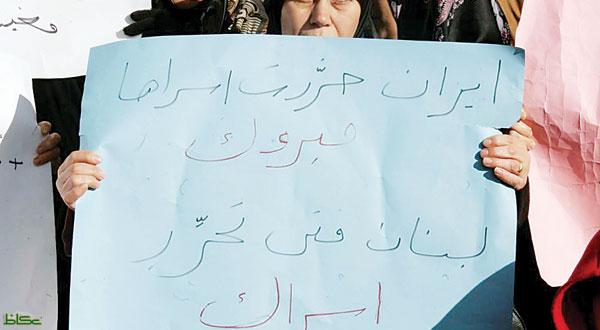 ايران حرَّرت اسراها
مبروك
لبنان متى تحرِّر
اسراك
عكاظ